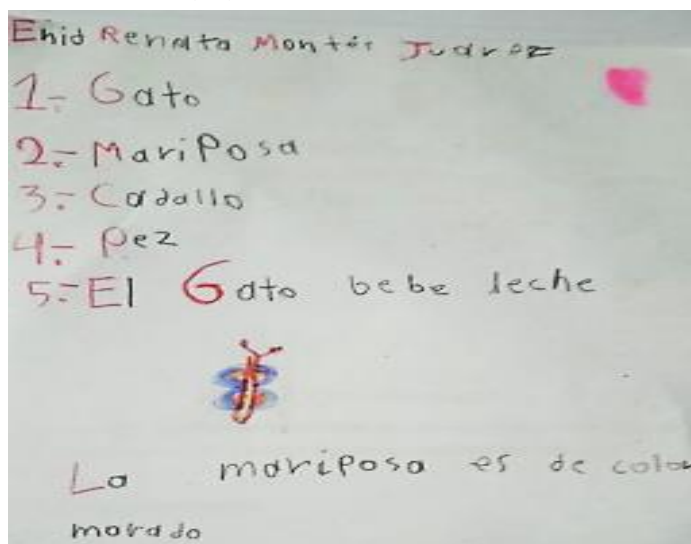 Enid Renata Montés Juarez
1.- Gato
2.- MariPosa
3.- Cadallo
4.- Pez
5.- El Gato bebe leche
La mariposa es de color
morado